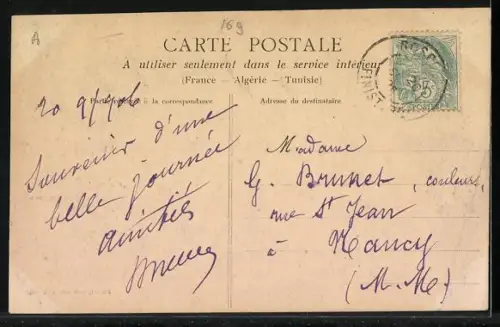 A
169
CARTE POSTALE
A utiliser seulement dans le service intérieur
(France - Algérie - Tunisie)
Partie réservée à la correspondance
Adresse du destinataire
20 9/
Souvenir d'une
belle journée
amitiés
Madame
G. Brunet, couleurs,
rue St Jean
à Nancy
(M.-M.)